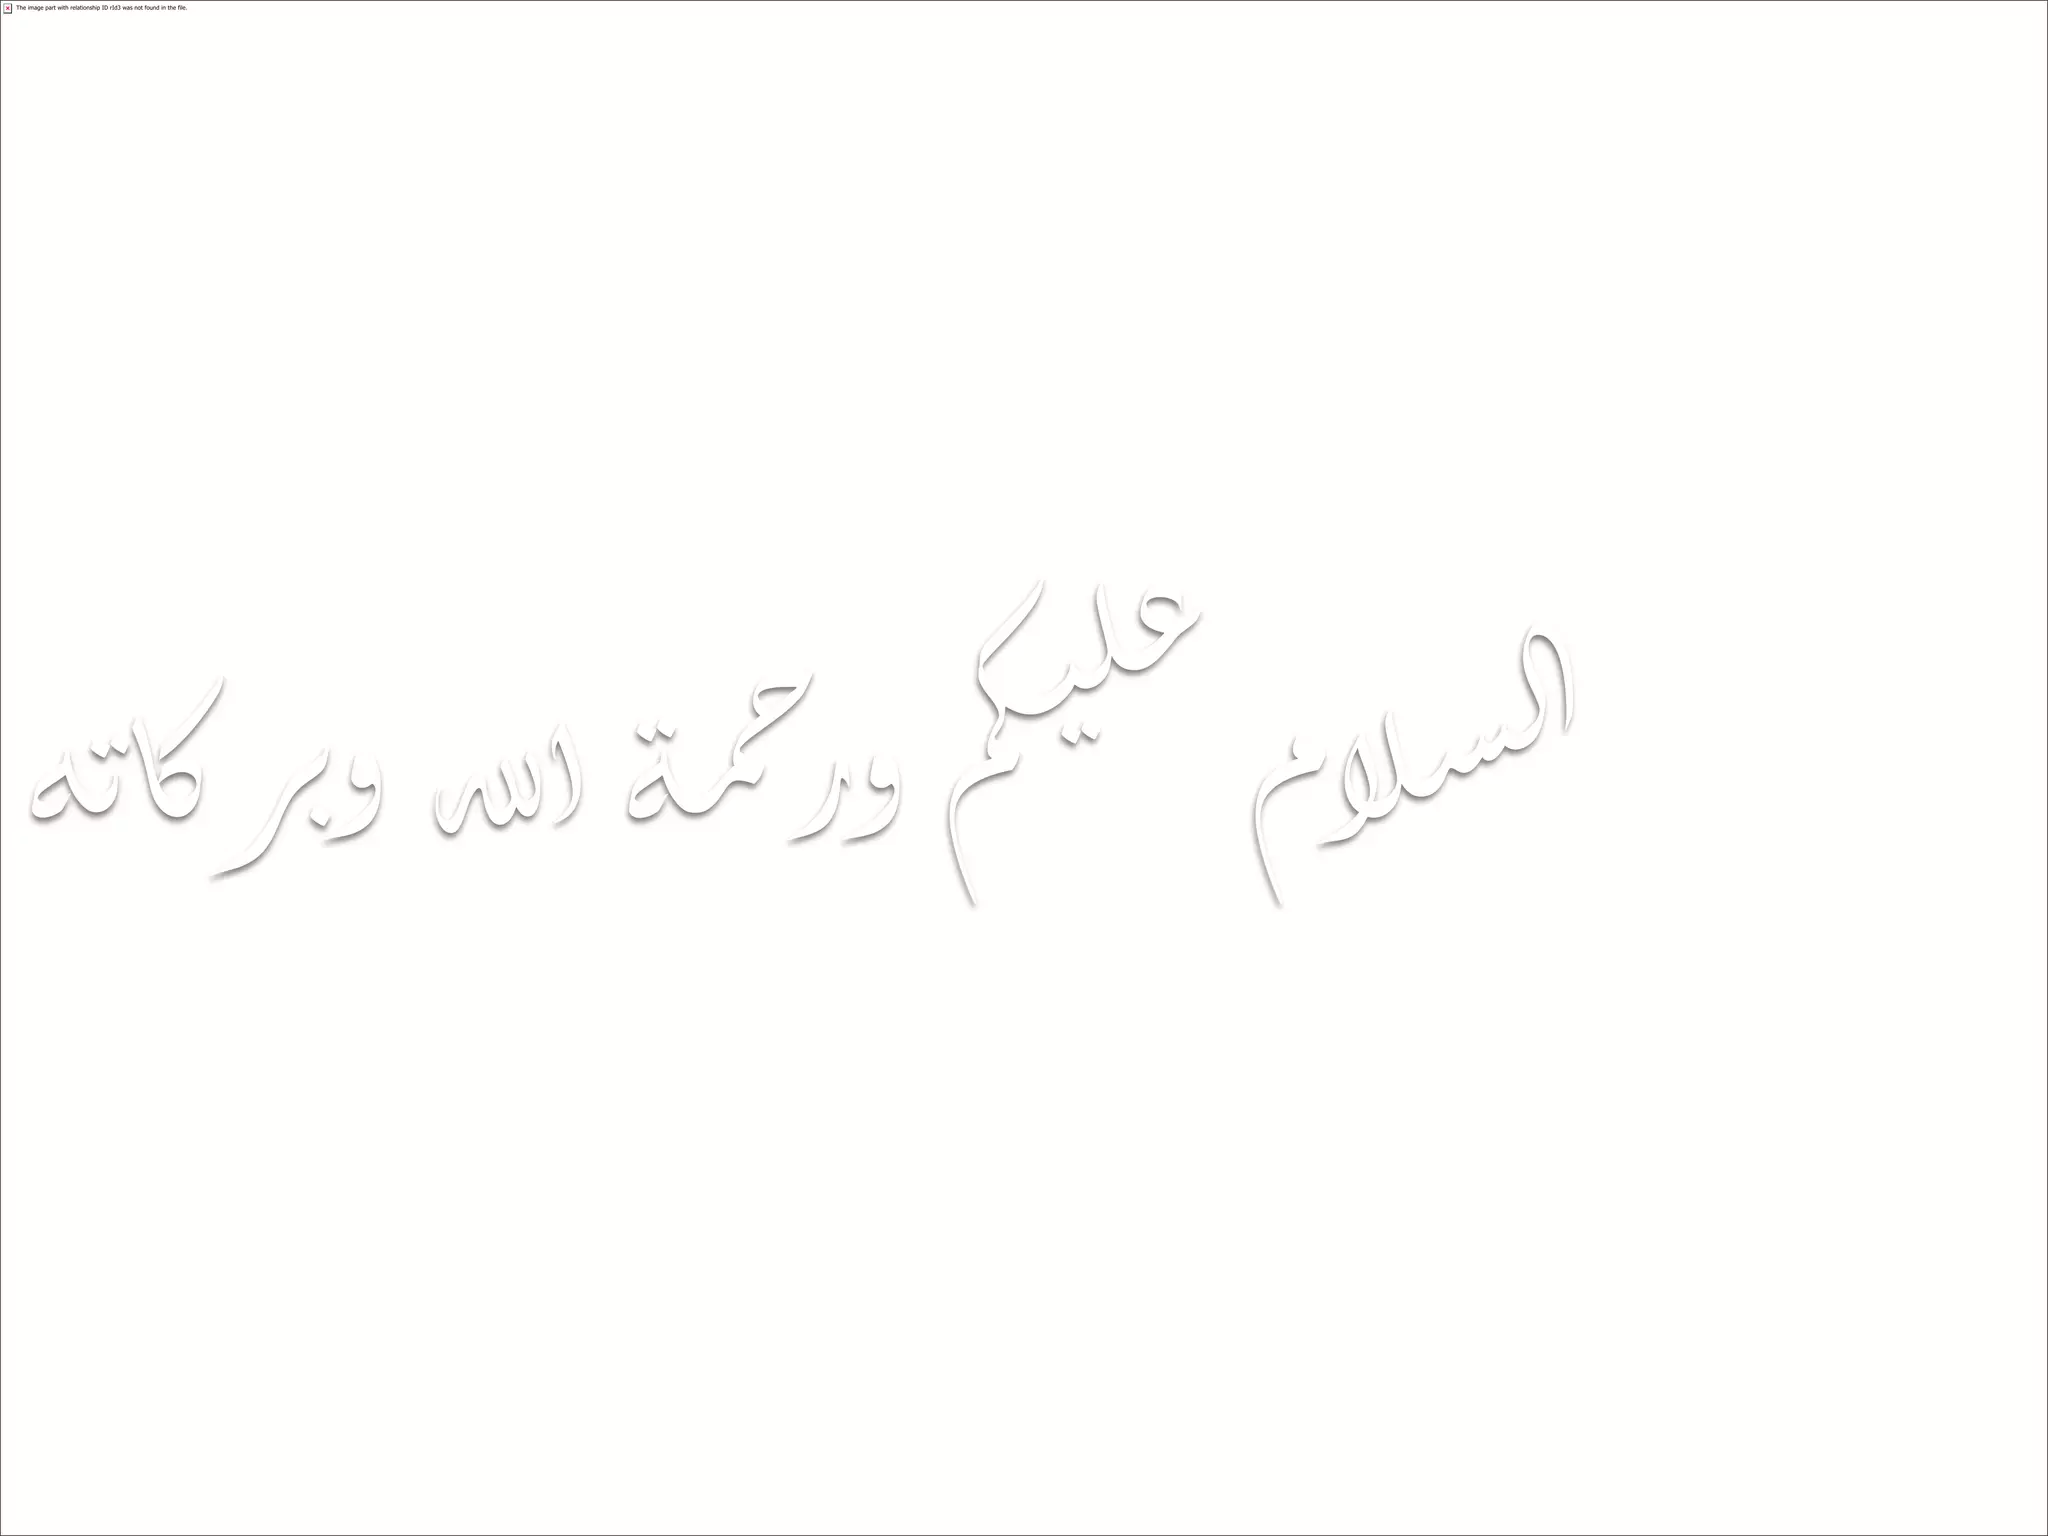 The image part with relationship ID rId3 was not found in the file.
السلام عليكم ورحمة الله وبركاته